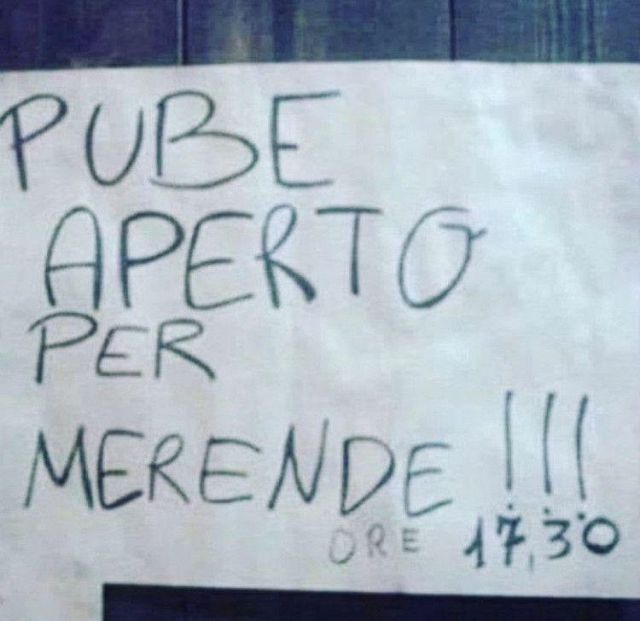 PUBE
APERTO
PER
MERENDE!!!
ORE 17,30